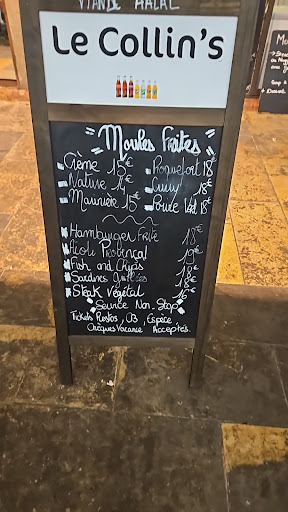 VIANDE HALAL
Le Collin's
Moules Frites
Crème 15€ Roquefort 18€
Nature 14€ Curry 18€
Marinière 15€ Poivre Vert 18€
Hamburger Frite 18€
Aïoli Provençal 19€
Fish and Chips 18€
Sardines Grillées 18€
Steak Végétal 16€
Service Non. Stop
Tickets Restos, CB, Espèce
Chèques Vacance Acceptés.